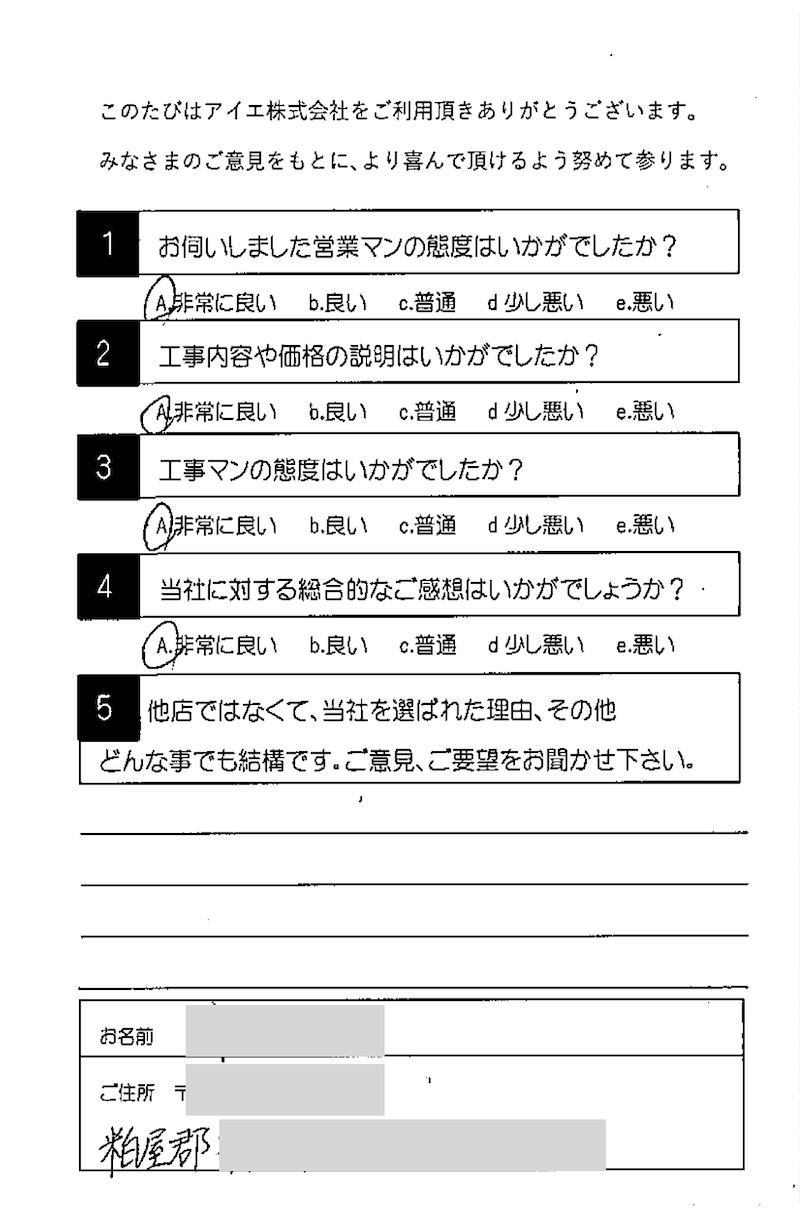 このたびはアイエ株式会社をご利用頂きありがとうございます。
みなさまのご意見をもとに、より喜んで頂けるよう努めて参ります。
1 お伺いしました営業マンの態度はいかがでしたか？
A.非常に良い b.良い c.普通 d 少し悪い e.悪い
2 工事内容や価格の説明はいかがでしたか？
A.非常に良い b.良い c.普通 d 少し悪い e.悪い
3 工事マンの態度はいかがでしたか？
A.非常に良い b.良い c.普通 d 少し悪い e.悪い
4 当社に対する総合的なご感想はいかがでしょうか？
A.非常に良い b.良い c.普通 d 少し悪い e.悪い
5 他店ではなくて、当社を選ばれた理由、その他
どんな事でも結構です。ご意見、ご要望をお聞かせ下さい。
お名前
ご住所 〒
粕屋郡